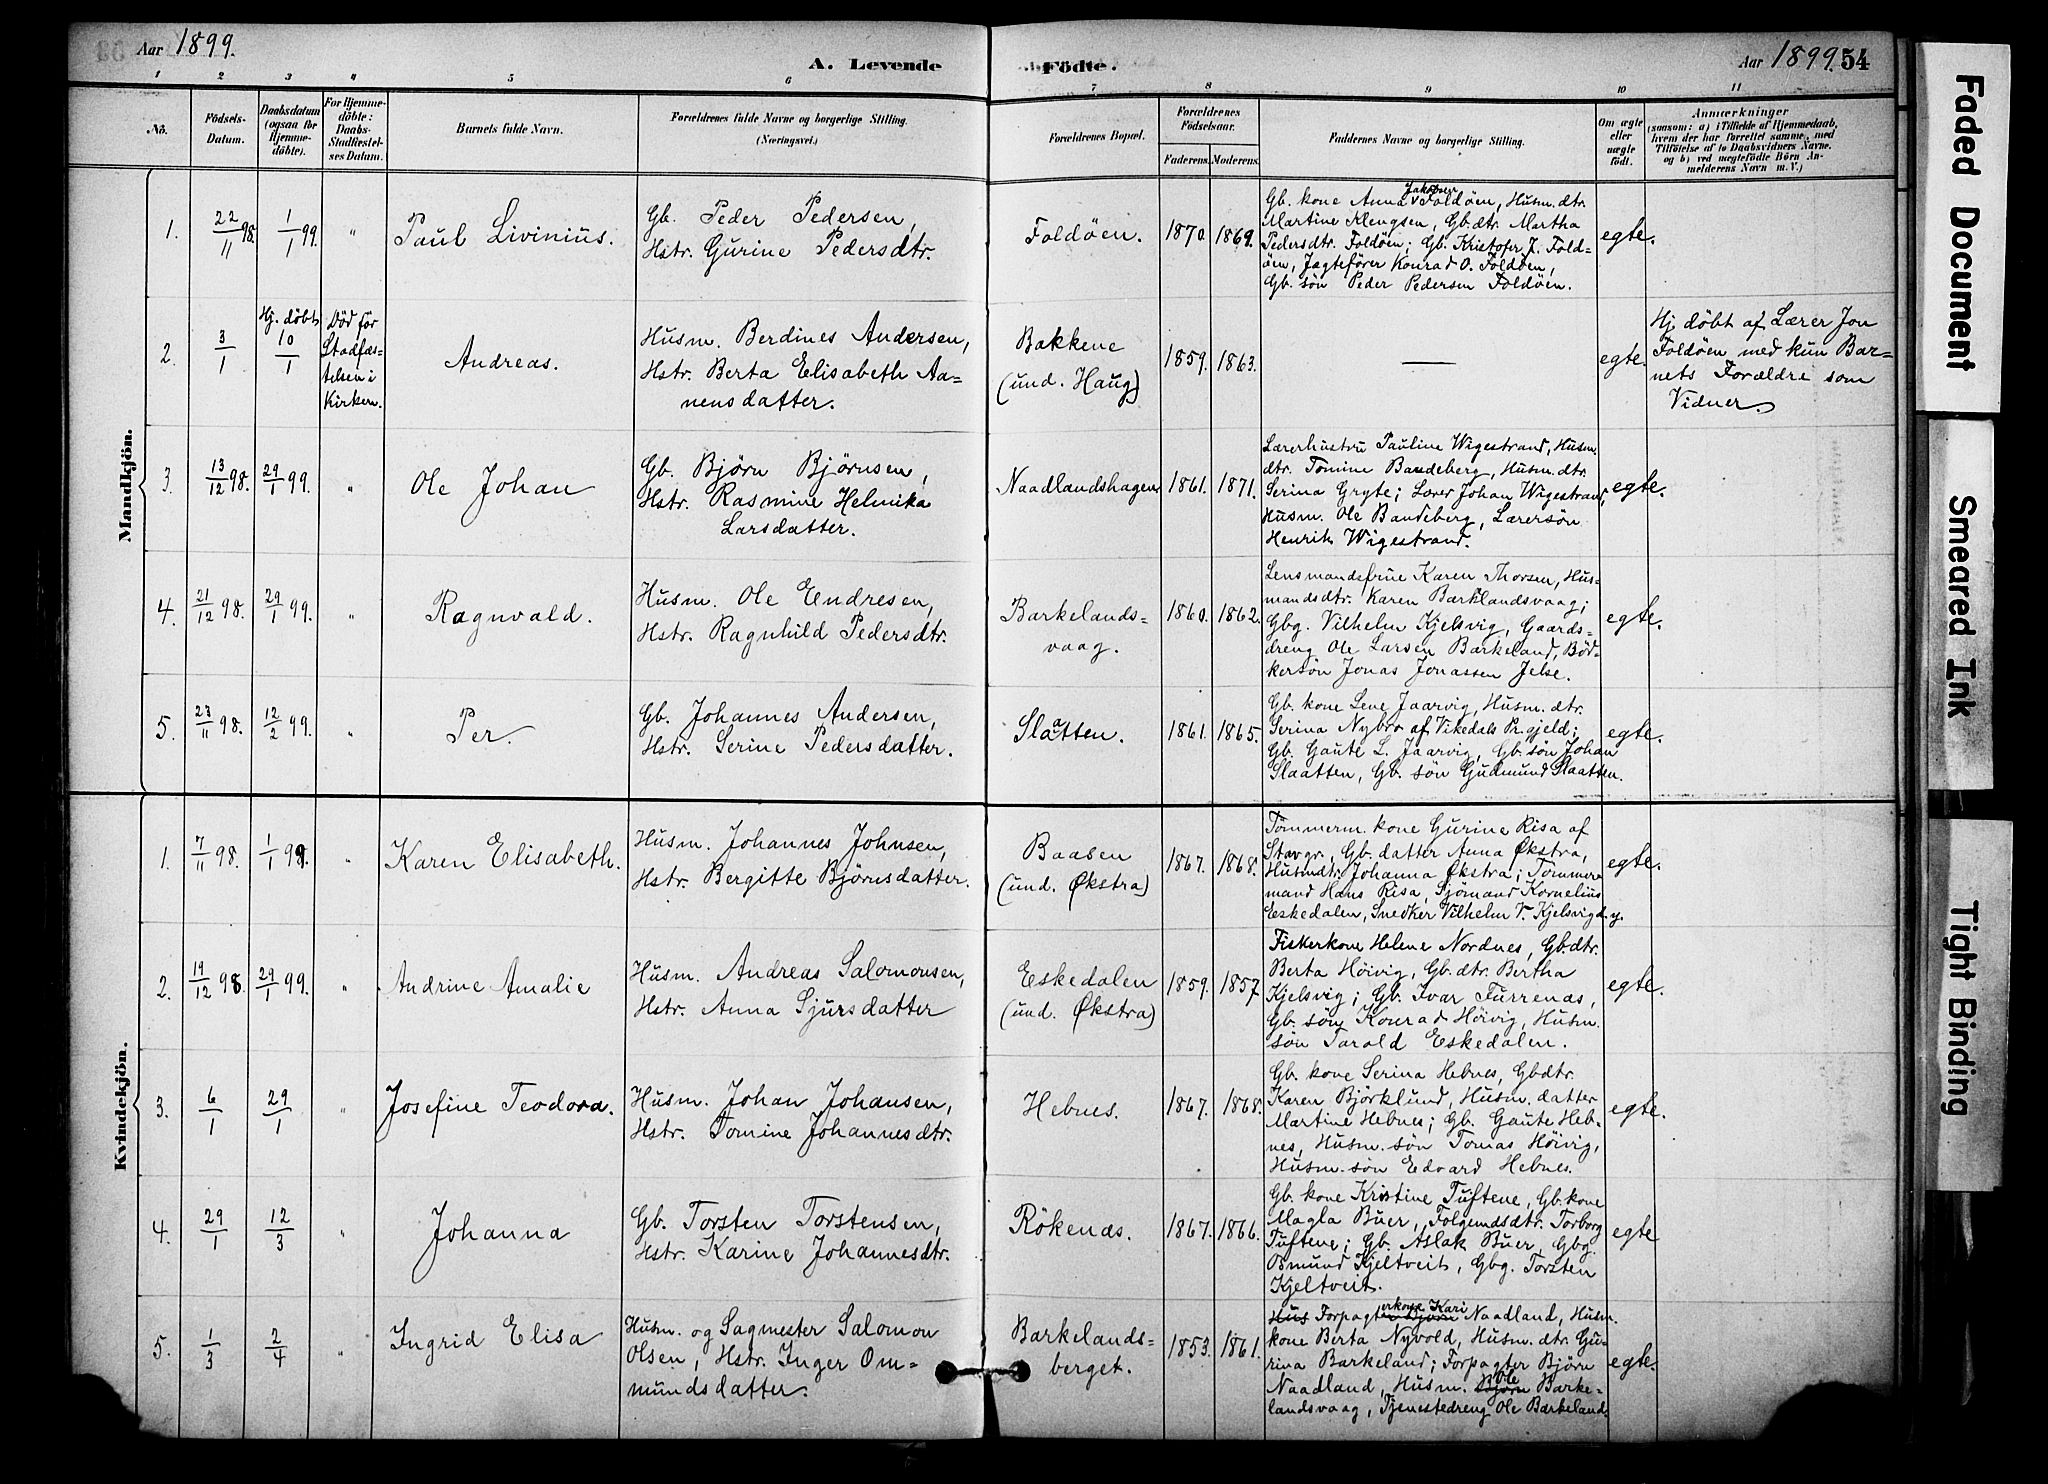 Aar 1899.
A. Levende Födte.
Aar 1899. 54
1 2 3 4 5 6 7 8 9 10 11
No.
Födsels-
Datum.
Daabsdatum
(ogsaa for
Hjemme-
döbte).
For Hjemme-
döbte:
Daabs-
Stadfæstel-
ses Datum.
Barnets fulde Navn.
Forældrenes fulde Navne og borgerlige Stilling.
(Næringsvei.)
Forældrenes Bopæl.
Forældrenes
Födselsaar.
Faderens. Moderens.
Faddernes Navne og borgerlige Stilling.
Om ægte
eller
uægte
födt.
Anmærkninger
(saasom: a) i Tilfælde af Hjemmedaab,
hvem der har forrettet samme, med
Tilföielse af to Daabsvidners Navne.
og b) ved uægtefödte Börn An-
melderens Navn m. V.)
Mandkjön.
1.
22/11 98.
1/1 99.
"
Paul Livinius.
Gb. Peder Pedersen,
Hstr. Gurine Pedersdtr.
Foldøen.
1870. 1869.
Gb. kone Anna Jakobsen Foldøen, Husm. dtr.
Martine Klengsen, Gb. dtr. Martha
Pedersdtr. Foldöen; Gb. Kristofer J. Fold-
öen, Jagtefører Konrad O. Foldöen,
Gb. sön Peder Pedersen Foldöen.
egte.
2.
3/1
Hj. döbt
10/1
Död før
Stadfæs-
telsen i
Kirken.
Andreas.
Husm. Berdines Andersen,
Hstr. Berta Elisabeth Aa-
nensdatter.
Bakkene
(und. Haug)
1859. 1863.
—
egte.
Hj. döbt af Lærer Jon
Foldöen med kun Bar-
nets Forældre som
Vidner.
3.
13/12 98.
29/1 99.
"
Ole Johan
Gb. Bjørn Bjørnsen,
Hstr. Rasmine Helmika
Larsdatter.
Naadlandshagen
1861. 1871.
Lærerhustru Pauline Wigestrand, Husm.
dtr. Tomine Bandeberg, Husm. dtr.
Serina Gryte; Lærer Johan Wigestrand,
Husm. Ole Bandeberg, Lærersön
Henrik Wigestrand.
egte.
4.
21/12 98.
29/1 99.
"
Ragnvald.
Husm. Ole Endresen,
Hstr. Ragnhild Pedersdtr.
Barkelands-
vaag.
1860. 1862.
Lensmandsfrue Karen Thorsen, Hus-
mandsdtr. Karen Barklandsvaag;
Gbg. Vilhelm Kjelsvig, Gaards-
dreng Ole Larsen Barkeland, Bød-
kersön Jonas Jonassen Jelse.
egte.
5.
23/11 98.
12/2 99.
"
Per.
Gb. Johannes Andersen,
Hstr. Serine Pedersdatter.
Slaatten.
1861. 1865.
Gb. kone Lene Jaarvig, Husm. dtr.
Serina Nybro af Vikedals Pr.gjeld;
Gb. Gaute L. Jaarvig, Gb. sön Johan
Slaatten, Gb. sön Gudmund Slaatten.
egte.
Kvindekjön.
1.
7/11 98.
1/1 99.
"
Karen Elisabeth.
Husm. Johannes Johnsen,
Hstr. Bergitte Björnsdatter.
Baasen
(und. Økstra)
1867. 1868.
Tømmerm. kone Gurine Risa af
Stavgr., Gb. datter Anna Økstra,
Husmdtr. Johanna Økstra; Tømmer-
mand Hans Risa, Sjömand Kornelius
Eskedalen, Snedker Vilhelm V. Kjelsvig d.y.
egte.
2.
19/12 98.
29/1 99.
"
Andrine Amalie
Husm. Andreas Salomonsen,
Hstr. Anna Sjursdatter
Eskedalen
(und. Økstra)
1859. 1857
Fiskerkone Helene Nordnes, Gb. dtr.
Berta Höivig, Gb. dtr. Bertha
Kjelsvig; Gb. Ivar Furrenas,
Gb. sön Konrad Höivig, Husm.
sön Tarald Eskedalen.
egte.
3.
6/1
29/1
"
Josefine Teodora.
Husm. Johan Johansen,
Hstr. Tomine Johannesdtr.
Hebnes.
1867. 1868.
Gb. kone Serina Hebnes, Gbdtr.
Karen Björklund, Husm. datter
Martine Hebnes; Gb. Gaute Heb-
nes, Husm. sön Tomas Höivig,
Husm. sön Edvard Hebnes.
egte.
4.
29/1
12/3
"
Johanna
Gb. Torsten Torstensen,
Hstr. Karine Johannesdtr.
Rökenas.
1867. 1866.
Gb. kone Kristine Tuftene, Gb. kone
Magla Buer, Folgemdsdtr. Torborg
Tuftene; Gb. Aslak Buer, Gbg.
Osmund Kjeltveit, Gbg. Torsten
Kjeltveit.
egte
5.
1/3
2/4
"
Ingrid Elisa
Husm. og Sagmester Salomon
Olsen, Hstr. Inger Om-
mundsdatter.
Barkelands-
berget.
1853. 1861.
Hus Forpagterkone Kari Naadland, Husm.
kone Berta Nyvold, Husm. dtr. Gu-
rina Barkeland; Forpagter Björn
Naadland, Husm. Björn Ole Barke-
landsvaag, Tjenestedreng Ole Barkeland.
egte.
Faded Document
Smeared Ink
Tight Binding